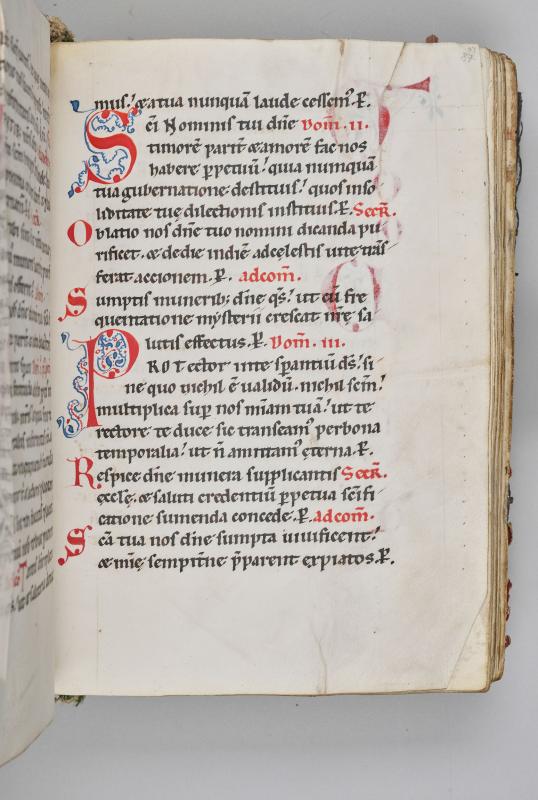 mus. & a tua nunquā laude cessem᷒. P̱.
Scī Nominis tui dn̄e Dom̄. II.
timorē parit᷒ & amorē fac nos
habere ꝑpetuū. quia numquā
tua gubernatione destituis. quos in so
liditate tuę dilectionis instituis. P̱. Secr̄.
Oblatio nos dn̄e tuo nomini dicanda pu
rificet. & de die in diē ad cęlestis uite trās
ferat accionem. P̱. ad com̄.
Sumptis munerib; dn̄e q̄s. ut cū fre
quentatione mysterii crescat nr̄e sa
lutis effectus. P̱. Dom̄. III.
PROTector in te sꝑantiū ds̄. si
ne quo nichil ē ualidū. nichil scm̄.
multiplica suꝑ nos mīam tuā. ut te
rectore te duce sic transeam᷒ per bona
temporalia. ut n̄ amittam᷒ ęterna. P̱.
Respice dn̄e munera supplicantis Secr̄.
ęccłę. & saluti credentiū ꝑpetua scīfi
catione sumenda concede. P̱. ad com̄.
Scā tua nos dn̄e sumpta uiuificent.
& mīę sempitn̄e p̄parent expiatos. P̱.